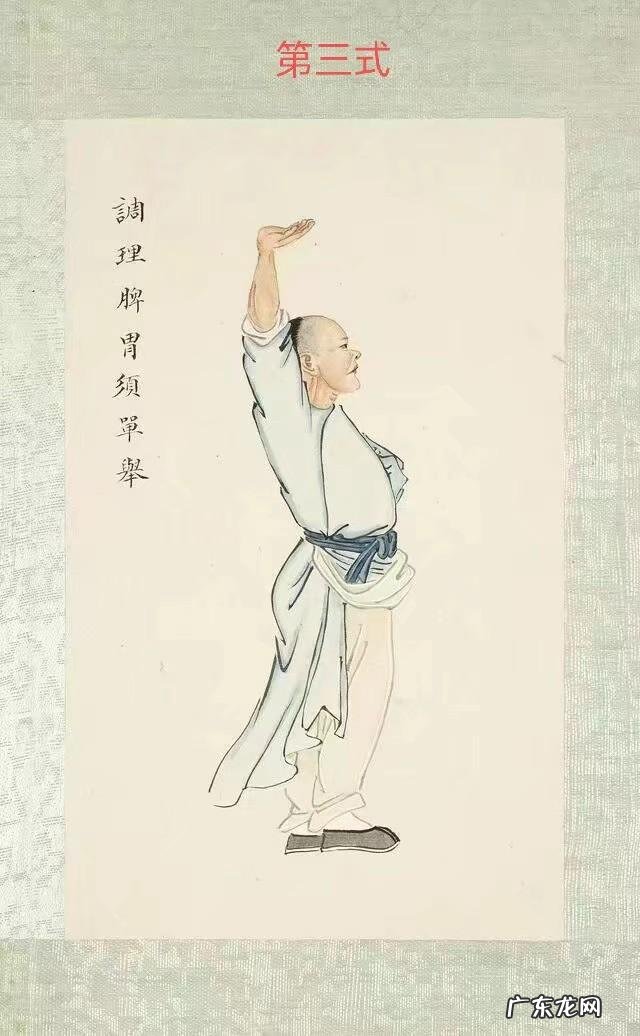 第三式
調理脾胃須單舉
广东龙网